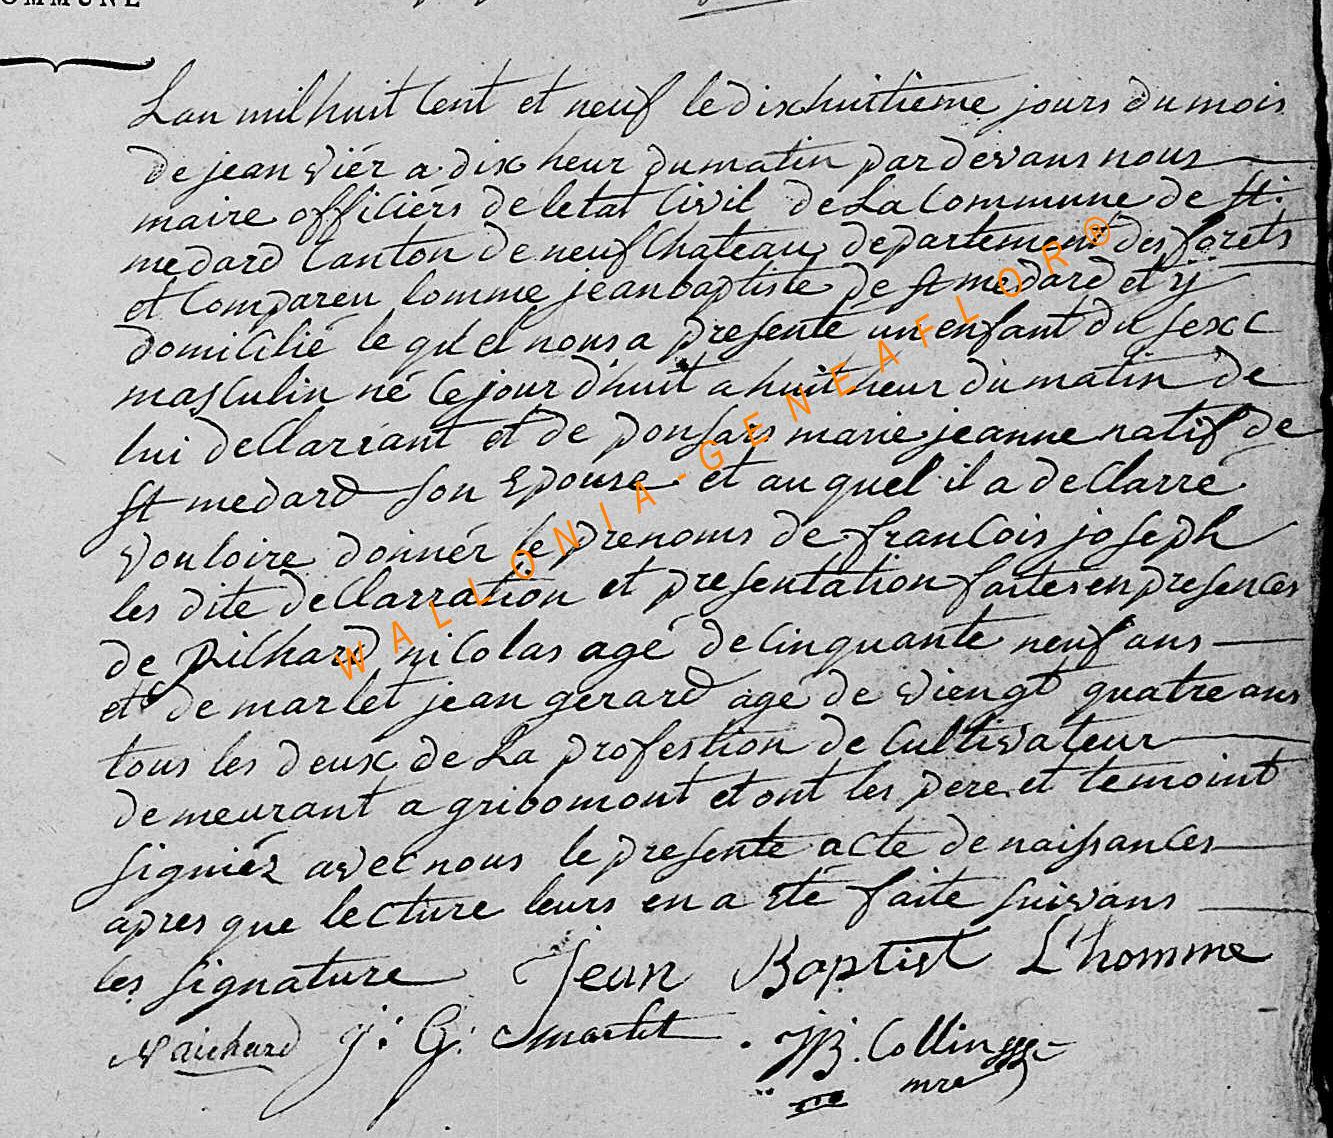 OMMUNE
Lan mil huit Cent et neuf le dix huitieme jours du mois
de jeanviér a dix heur du matin par devans nous
maire officiérs de letat Civil de La Commune de st.
medard Canton de neufChateau departement des forets
et Compareu lomme jean baptiste de st medard et ÿ
domicilié le quel nous a presenté un enfant du sexe
masculin né Ce jour d'huit a huit heur du matin de
lui deClarrant et de ponsars marie jeanne natif de
st medard son Epouse et au quel il a deClarré
vouloire donnér le prenoms de franCois joseph
les dite deClarration et presentation faites en presences
de pilhard nicolas agé de cinquante neuf ans
et de marlet jean gerard age de viengt quatre ans
tous les deux de La profestion de Cultivateur
demeurant a gribomont et ont les pere et temoint
signiéz avec nous le presente acte de naissances
apres que lecture leurs en a eté faite suivans
les signature Jean Baptist L'homme
J: G: marlet . JB. Collin
mre
WALLONIA-GENEAFLOR®